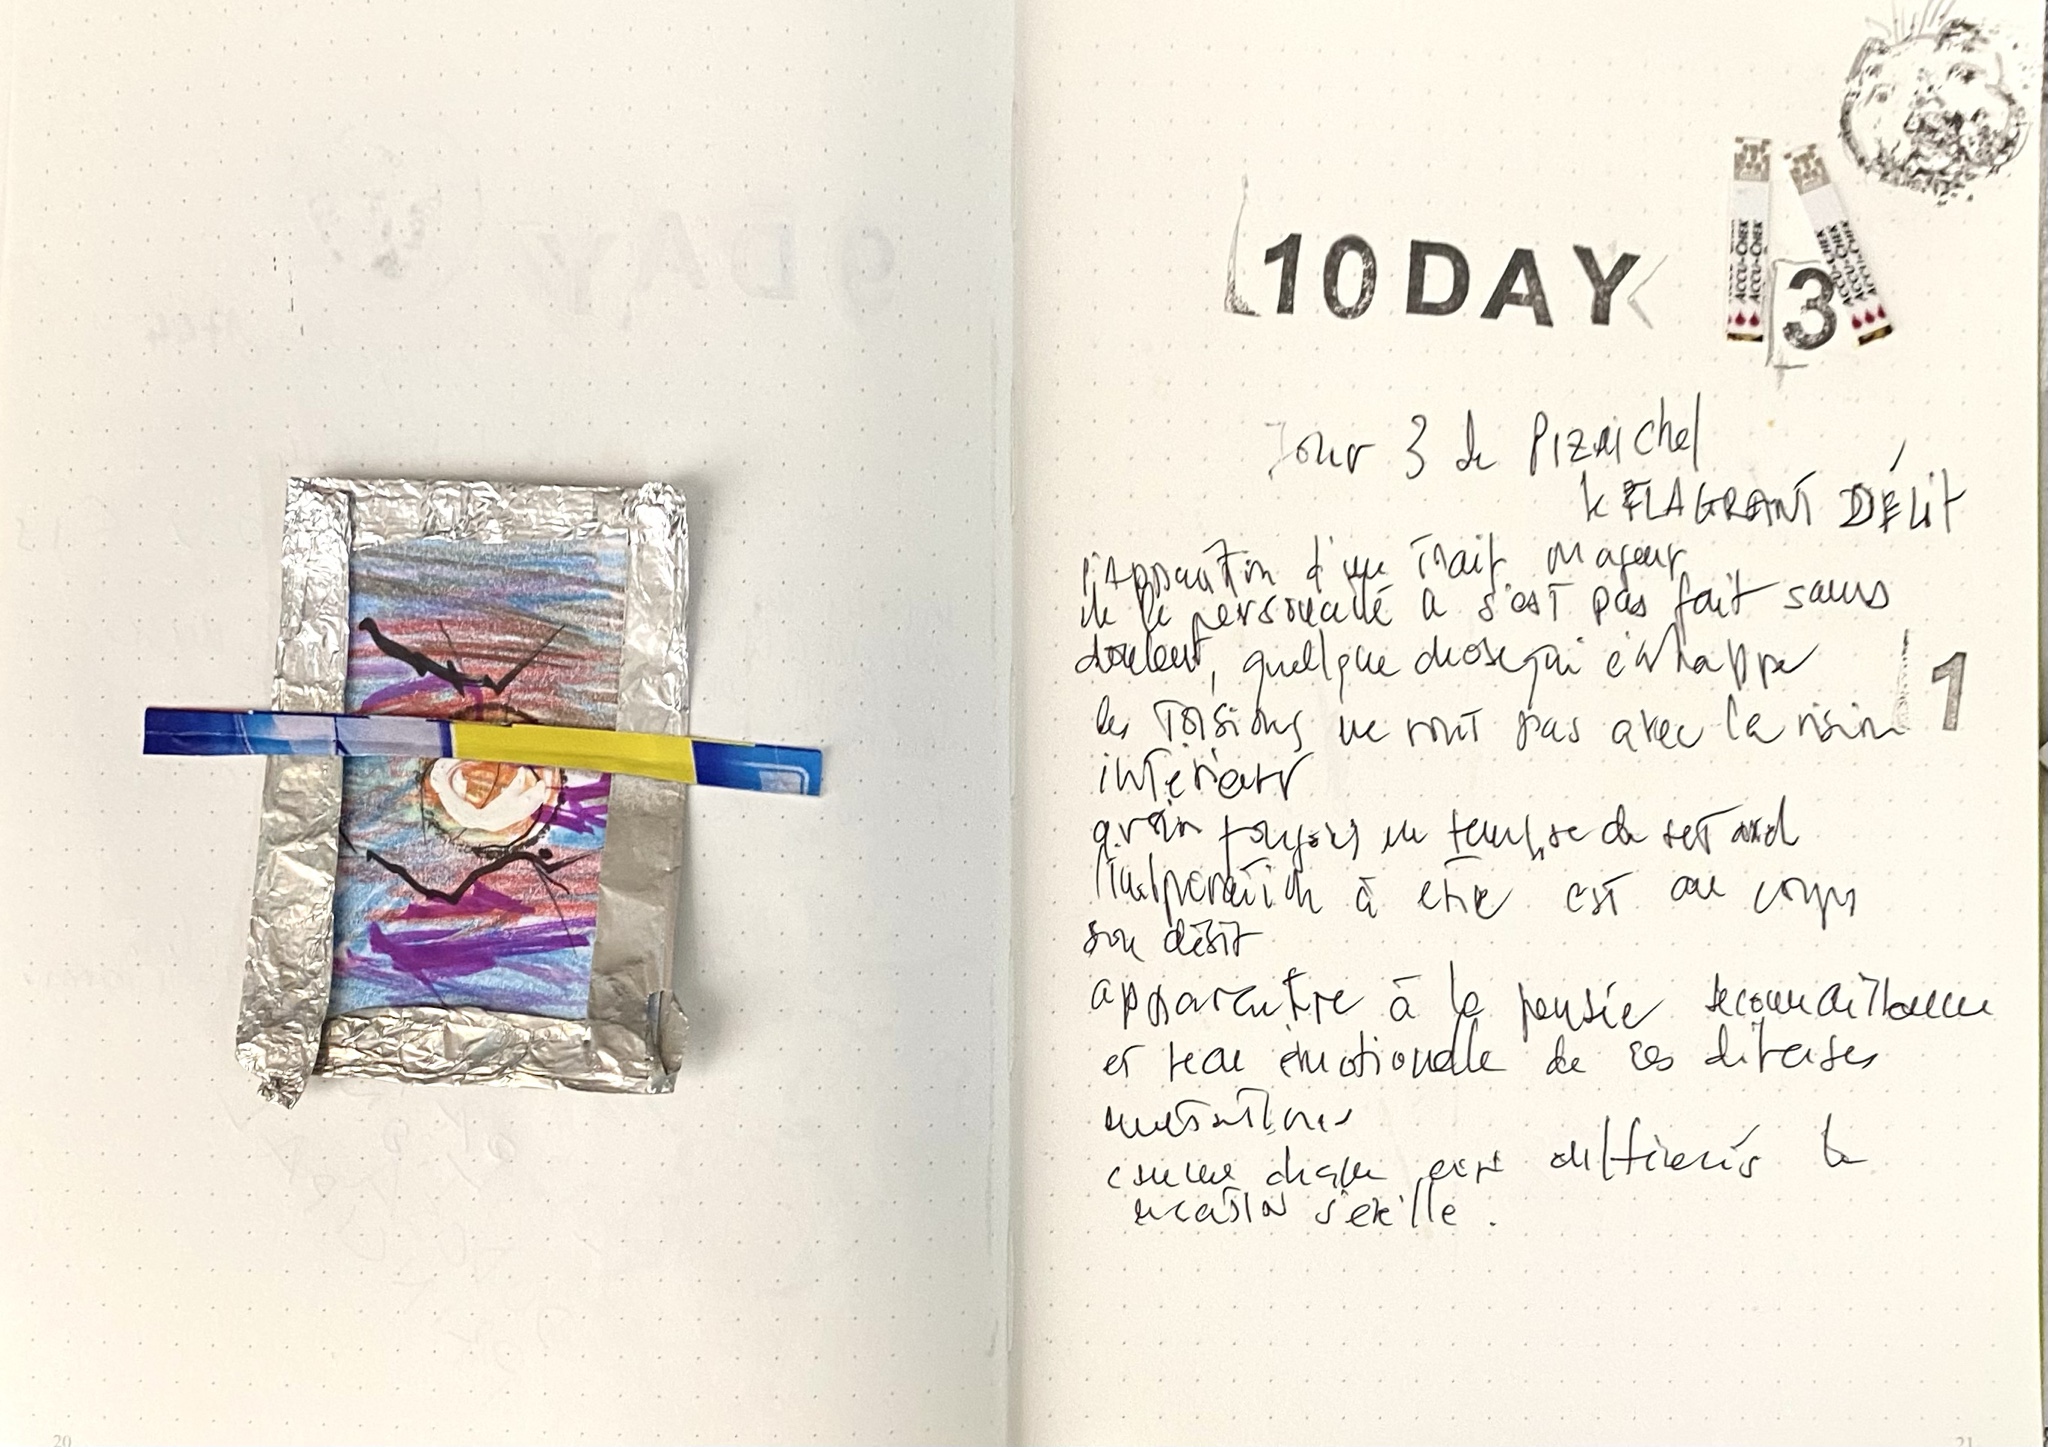 10 DAY 3
ACCU-CHEK ACCU-CHEK
ACCU-CHEK ACCU-CHEK
Jour 3 de Pizaichel
le FLAGRANT DÉLIT
l'Apparition d'un Trait majeur
de la personalité a s'est pas fait sans
douleur, quelque chose qui échappe
les Torsions ne vont pas avec la vision
1
intérieur
toujours un temps de retard
à être est au corps
son désir
apparaitre à la pensée reconnaissance
et émotionelle de ses diverses
mutations
comme chaque est différencié le
s'exille.
20
21